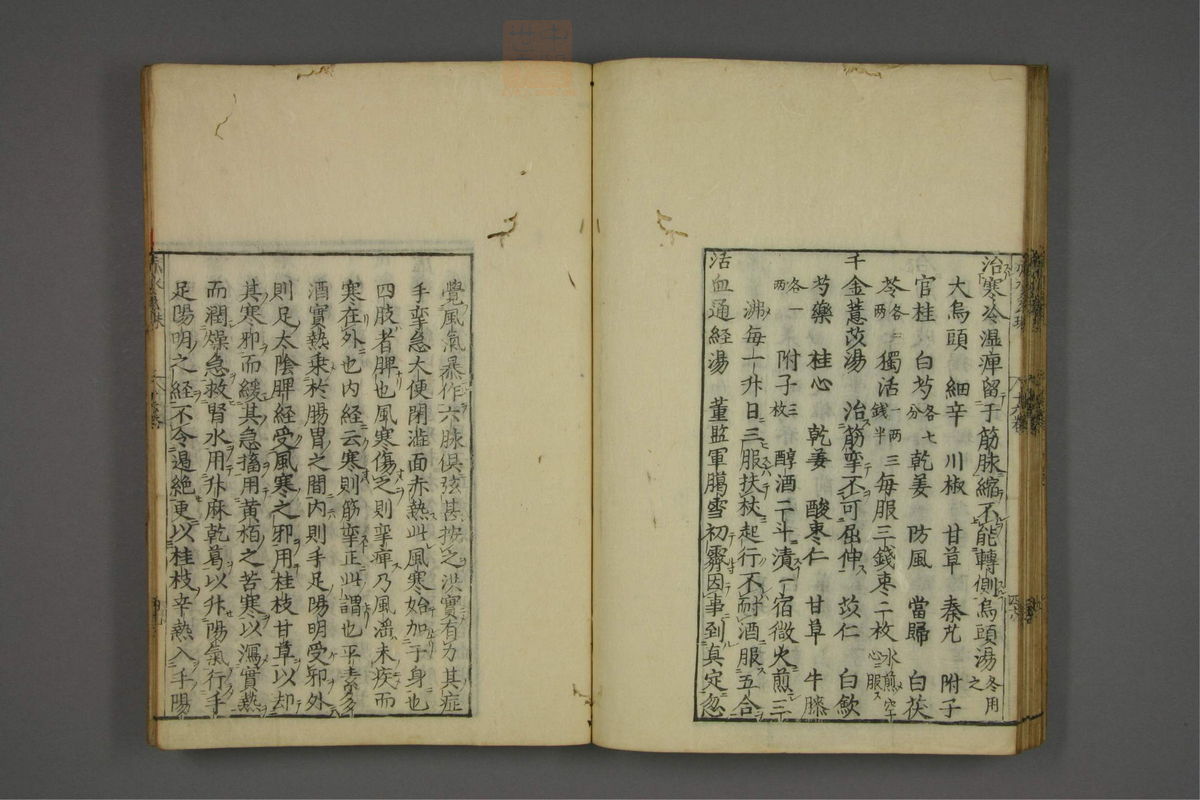 治寒冷湿痺留于筋脉縮不能轉側烏頭湯冬用之
大烏頭 細辛 川椒 甘草 秦艽 附子
官桂 白芍各七分 乾姜 防風 當歸 白茯
苓各三両 獨活一両三錢半 每服三錢棗二枚水煎空心服
千金薏苡湯 治筋攣不可屈伸 苡仁 白歛
芍藥 桂心 乾姜 酸棗仁 甘草 牛膝
各一両 附子三枚 醇酒二斗漬一宿微火煎三
沸每一升日三服扶杖起行不耐酒服五合
活血通經湯 董監軍臈雪初霽因事到真定忽
覺風氣暴作六脉俱弦甚按之洪實有力其症
手攣急大便閉澁面赤熱此風寒始加于身也
四肢者脾也風寒傷之則攣痺乃風滛末疾而
寒在外也内経云寒則筋攣正此謂也平素多
酒實熱乗於腸胃之間内則手足陽明受邪外
則足太陰脾經受風寒之邪用桂枝甘草以却
其寒邪而緩其急搐用黄栢之苦寒以瀉實熱
而潤燥急救腎水用升麻乾葛以升陽氣行手
足陽明之経不令遏絶更以桂枝辛熱入手陽